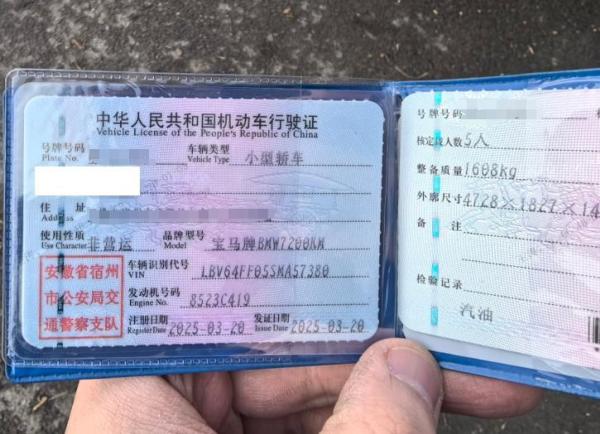 中华人民共和国机动车行驶证
Vehicle License of the People's Republic of China
号牌号码
Plate No.
车辆类型
Vehicle Type
小型轿车
住 址
Address
使用性质
Use Character
非营运
品牌型号
Model
宝马牌BMW7200KM
安徽省宿州
市公安局交
通警察支队
车辆识别代号
VIN
LBV64FF05SMA57380
发动机号码
Engine No.
8523C419
注册日期
Register Date
2025-03-20
发证日期
Issue Date
2025-03-20
号牌号码
核定载人数
5人
整备质量
1608kg
外廓尺寸
4728×1827×14
备 注
检验记录
汽油